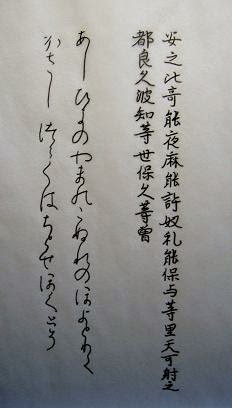 安之比奇能夜麻能許奴礼能保与等里天可射之
都良久波知等世保久等曽
あしひきのやまのこぬれのほよとりて
かさしつらくはちとせほくとそ